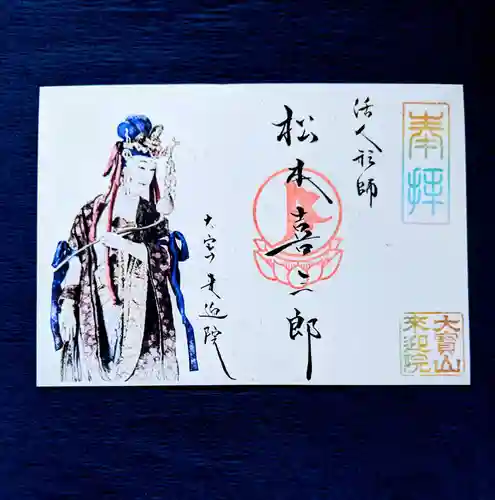 奉拝
活人形師
松本喜三郎
大宝山来迎院
大寶山
来迎院